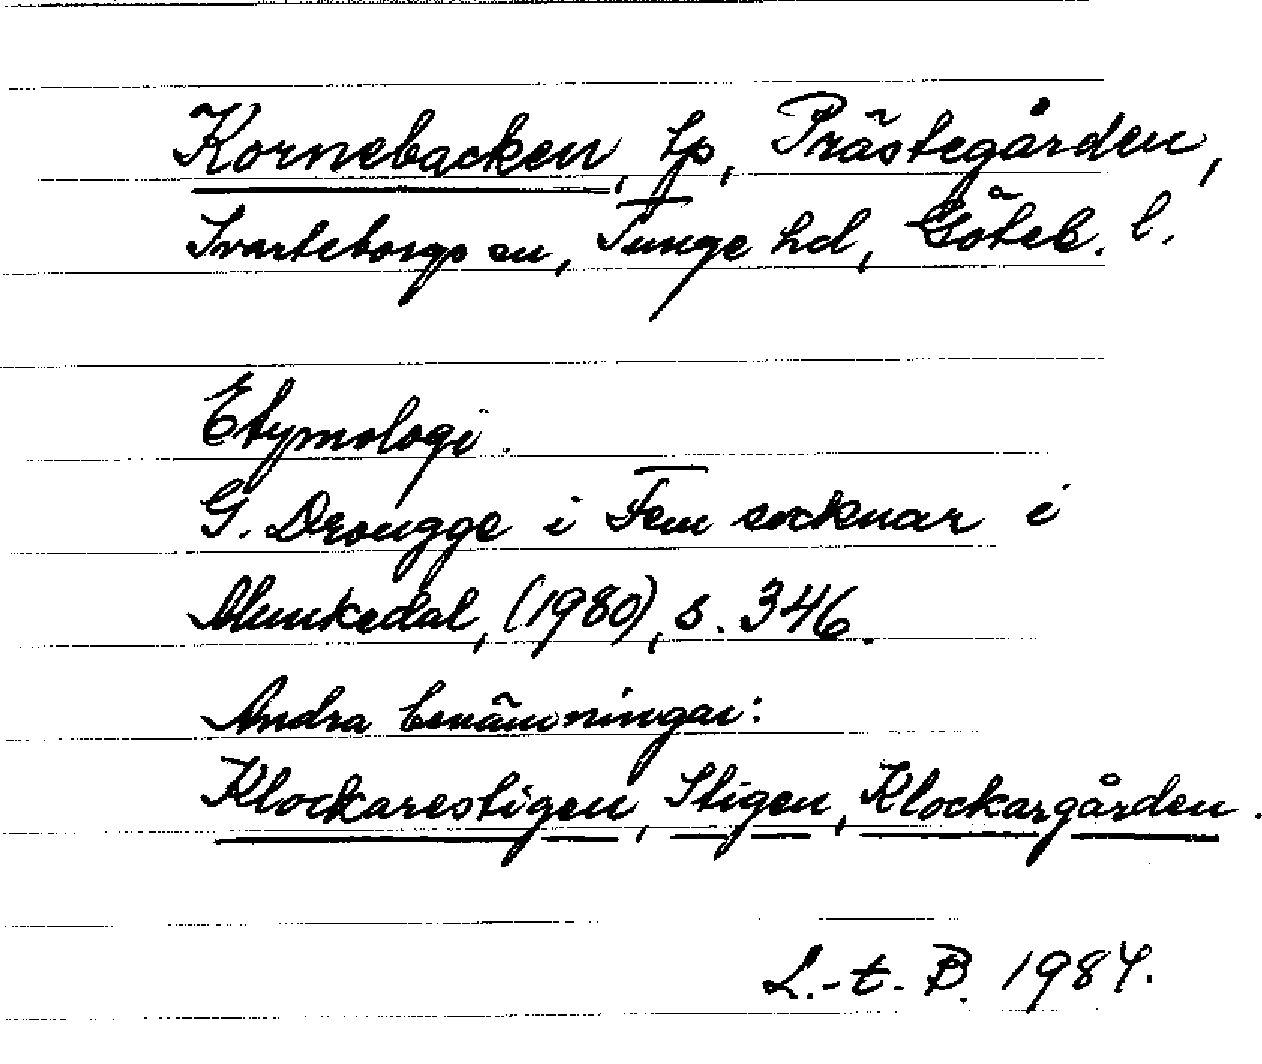 Kornebacken, tp, Prästegården,
Svarteborgs sn, Tunge hd, Göteb. l.
Etymologi.
G. Drougge i Fem socknar i
Munkedal, (1980), s. 346.
Andra benämningar:
Klockarestigen, Stigen, Klockargården.
L.-t. B. 1984.